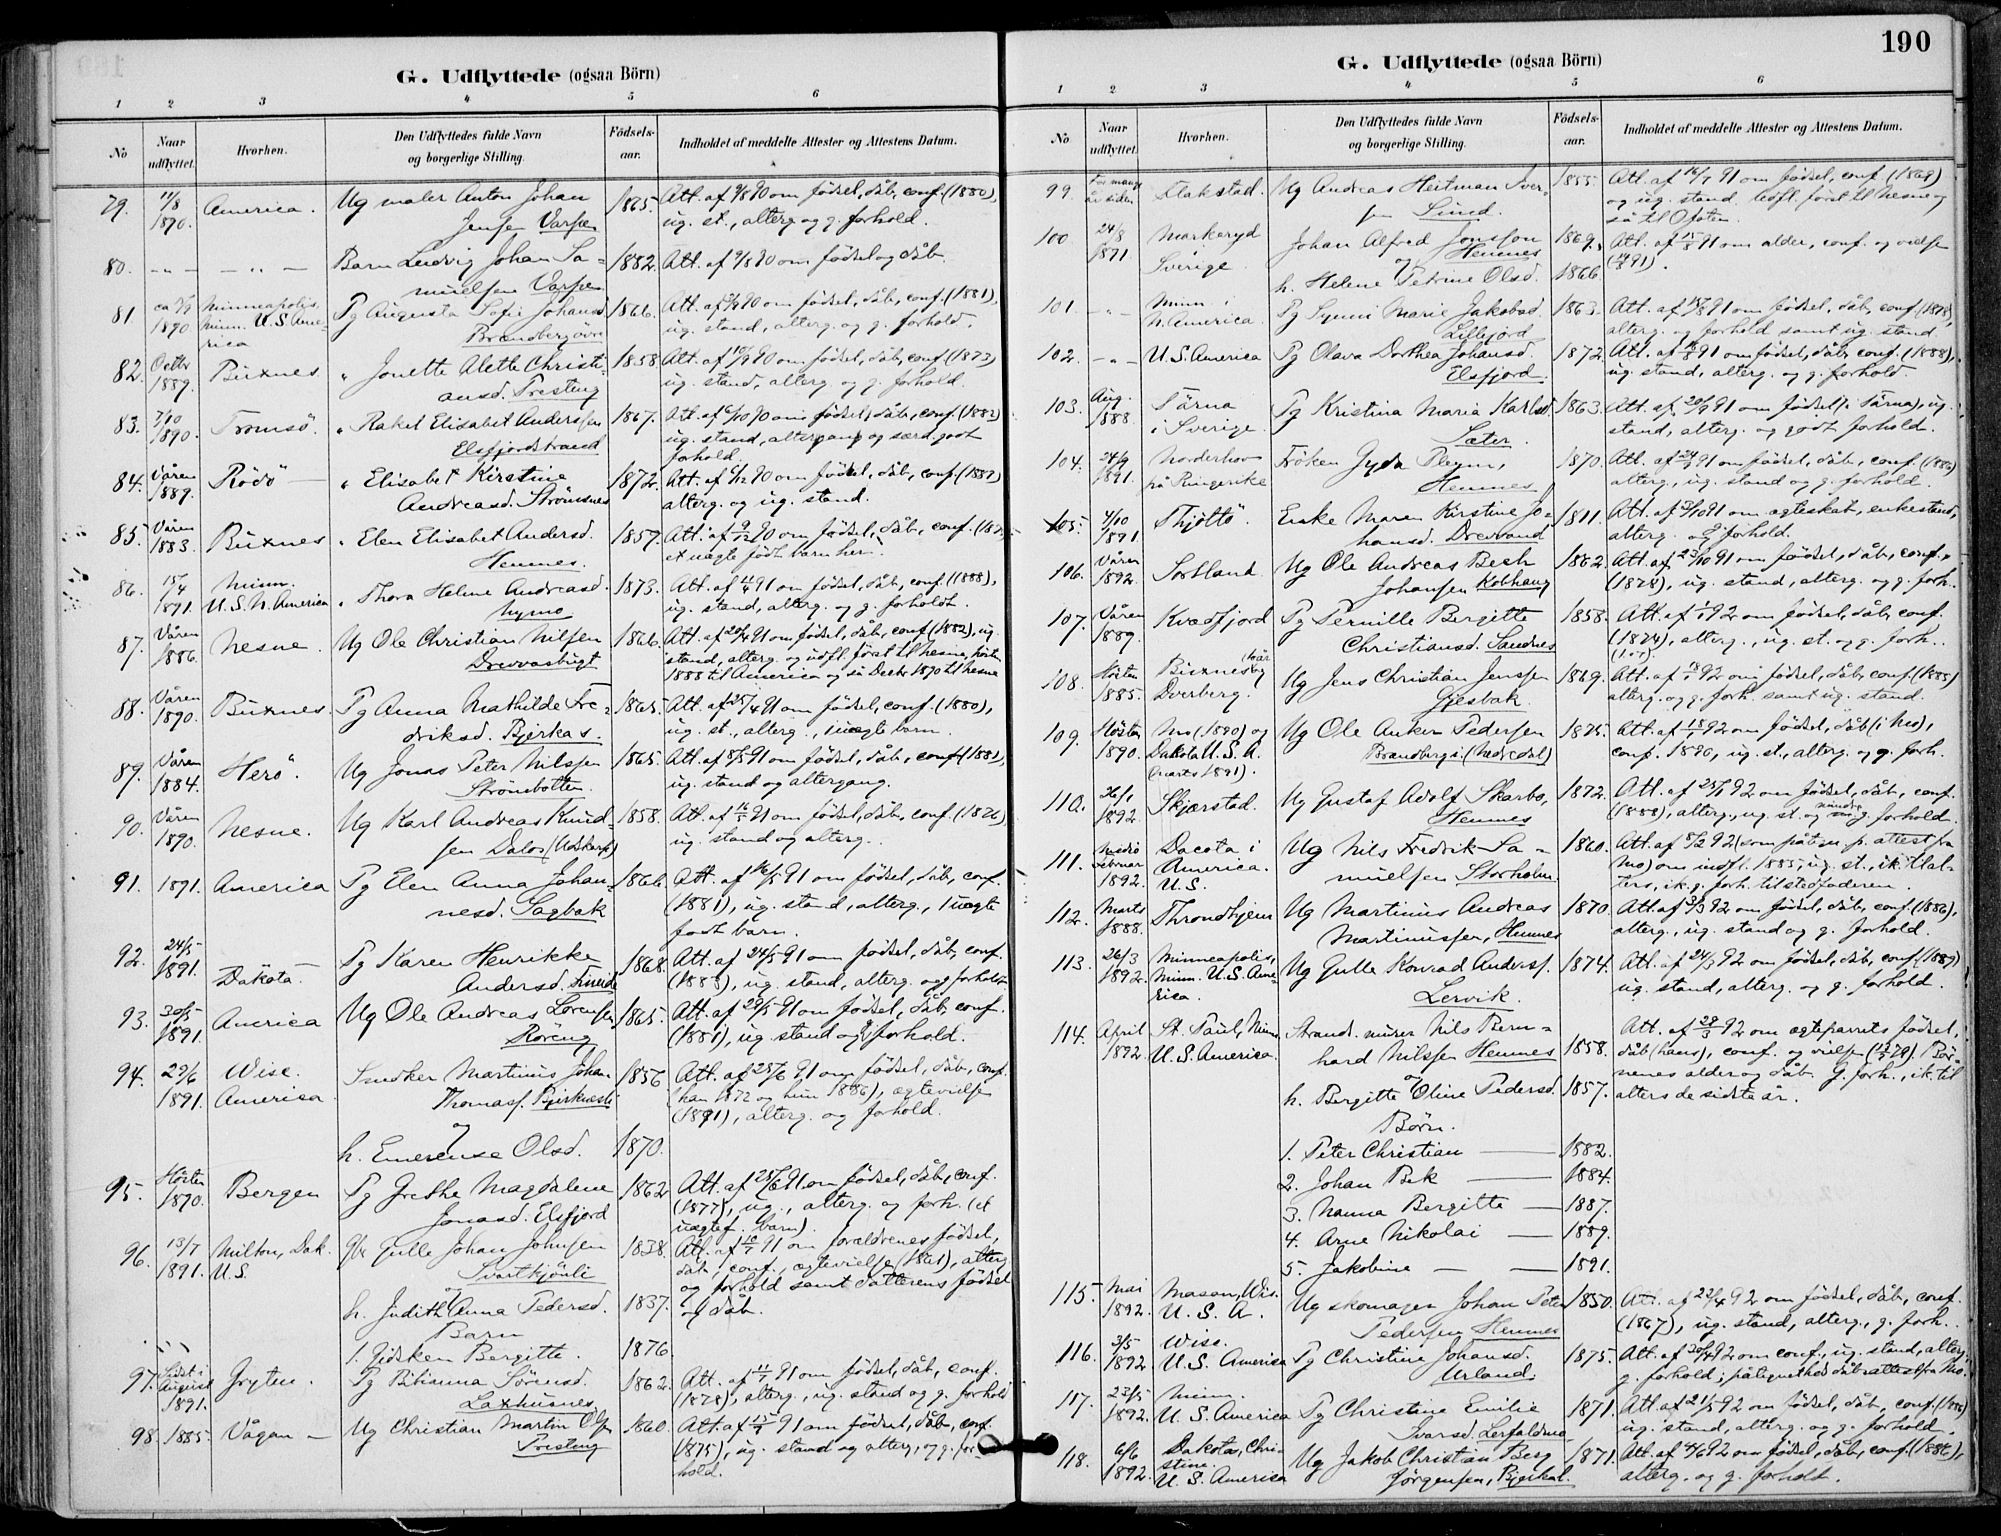 G. Udflyttede (ogsaa Börn)
1 2 3 4 5 6
No Naar udflyttet. Hvorhen. Den Udflyttedes fulde Navn og borgerlige Stilling. Födsels-aar. Indholdet af meddelte Attester og Attestens Datum.
79. 11/8 1890. America. Ug maler Anton Johan 1865. Att. af 9/8 90 om födsel, dåb, conf. (1880),
Jensen Varpen ug. st., alterg. og g. forhold.
80. -„- -„- Barn Ludvig Johan Sa- 1882. Att. af 9/8 90 om födsel og dåb.
muelsen Varpen.
81 1890 Minneapolis, Minn. U.S. America Pg Augusta Sofie Johansd. 1866. conf. (1881),
Brandbergövre ug. stand, alterg. og g. forhold.
82. Octbr 1889. Buxnes „ Jonette Alette Christi- 1858. om födsel, dåb, conf. (1873)
ansd. Presteng ug. stand, alterg. og g. forhold.
83. 7/10 1890. Tromsö. „ Rakel Elisabet Anderssen 1867. om födsel, dåb, conf. (1882)
Elsfjordstrand ug. stand, altergang og særd. godt
forhold.
84. Våren 1889. Rödö „ Elisabet Kirstine 1872. om födsel, dåb, conf. (1887)
Andreasd. Strömsnes alterg. og ug. stand.
85. Våren 1883. Buxnes „ Elen Elisabet Andersd. 1857. Att. af 9/12 90 om födsel, dåb, conf.
Hemnes. et uægte födt barn her.
86. 15/4 1891. Minn. U.S.N. America „ Thora Helene Andreasd. 1873. om födsel, dåb, conf. (1888),
ug. stand, alterg. og g. forholdt.
87. Våren 1886. Nesne. Ug Ole Christian Nilsen 1866. om födsel, dåb, conf. (1882), ug.
Drevvasbugt stand, alterg. og udfl. först til Nesne, hösten
1888 til America og så Decbr 1890 til Nesne
88. Våren 1890. Buxnes Pg Anna Mathilde Fre- 1865. om födsel, conf. (1880),
driksd. Bjerkas. ug. st., alterg., 1 uægte barn.
89. Våren 1884. Herö. Ug Jonas Peter Nilssen 1865. om födsel, dåb, conf. (1882),
Strömbotten. ug. stand og altergang.
90. Våren 1890. Nesne. Ug Karl Andreas Knud- 1858. om födsel, dåb, conf. (1876)
sen Dalos (Utskarp) ug. stand og alterg.
91. 1891. America Pg Elen Anna Johan- 1866. Att. af 16/5 91 om födsel, dåb, conf.
nesd. Sagbak (1881), ug. stand, alterg., 1 uægte
födt barn.
92. 24/5 1891. Dakota. Pg Karen Henrikke 1868. Att. af 24/5 91 om födsel, dåb, conf.
Andersd. (1883), ug. stand, alterg. og g. forholdt
93. 30/5 1891. America Ug Ole Andreas Lorensen 1865. Att. af 29/5 91 om födsel, dåb, conf.
Röreng (1881), ug. stand og g. forhold.
94. 29/6 1891. Wisc. America. Snedker Martinus Johan 1856 Att. af 25/6 91 om födsel, dåb, conf.
Thomass. (han 1872 og hun 1886), ægtevielse
og (1891), alterg. og forhold.
h. Emerense Olsd. 1870.
95. Hösten 1890. Bergen Pg Grethe Magdalene 1862 Att. af 25/6 91 om födsel, dåb, conf.
Jonasd. Elsfjord (1877), ug., alterg. og forh. (et
uægtef. barn).
96. 13/7 1891. Milton, Dak. U.S. Gbr Gulle Johan Johnsen 1838. om forældrenes födsel,
Svartkjönli dåb, conf., ægtevielse (1861), alterg.
og og forhold samt datterens födsel
h. Judith Anna Pedersd. 1837. og dåb.
Barn
1. Gidsken Bergitte. 1876
97. Sidst i August 1891. Gryten. Pg Bibianna Sörensd. 1862. om födsel, dåb, conf.
Laxhusnes (1878), alterg., ug. stand og g. forhold
98. 1885. Vågan Ug Christian Martin Olsen 1860. om födsel, dåb, conf.
Presteng (1875), ug. stand og alterg., g. for-
hold.
190
G. Udflyttede (ogsaa Börn)
1 2 3 4 5 6
No Naar udflyttet. Hvorhen. Den Udflyttedes fulde Navn og borgerlige Stilling. Födsels-aar. Indholdet af meddelte Attester og Attestens Datum.
99. For mange år siden Flakstad. Ug Andreas Heitman Iver- 1855. om födsel, conf. (1869)
sen Sund. og ug. stand. Udfl. först til Nesne og
så til Ofoten.
100. 24/8 1891. Markaryd Sverige. Johan Alfred Jonsson 1869. om alder, conf. og vielse
og Hemnes
h. Helene Petrine Olsd. 1866.
101. -„- Minn i N. America. Pg Synni Marie Jakobsd. 1863. om födsel, dåb, conf. (1878),
Lillefjord alterg. og forhold samt ug. stand
102. -„- U.S. America Pg Olava Dorthea Johansd. 1872. om födsel, dåb, conf. (1888),
Elsfjord. ug. stand, alterg. og g. forhold
103. Aug. 1888. Tärna i Sverige. Pg Kristina Maria Karlsd. 1863. om födsel (i Tärna), ug.
Sæter. stand, alterg. og godt forhold.
104. 24/9 1891. Norderhov på Ringerike Fröken Gyda Pleym, 1870. om födsel, dåb, conf. (1886)
Hemnes alterg., ug. stand og g. forhold.
105. 4/10 1891. Thjöttö. Enke Maren Kirstine Jo- 1811. om ægteskab, enkestand,
hansd. Drevvand alterg. og g. forhold.
106. Våren 1892. Sortland. Ug Ole Andreas Bech 1862. Att. af 23/10 91 om födsel, dåb, conf.
Johansen Kobhaug (1878), ug. stand, alterg. og g. forh.
107. Våren 1889. Kvædfjord Pg Pernille Bergitte 1858. om födsel, dåb, conf.
Christiansd. Sandnes (1874), alterg., ug. st. og g. forh.
108. Hösten 1885. Buxnes (1 år) Dverberg. Ug Jens Christian Jenssen 1869. om födsel, dåb, conf. (1885)
alterg. og g. forh. samt ug. stand.
109. Hösten 1890. Mo (1890) og Dakota U.S.A. (marts 1891). Ug Ole Anker Pedersen 1875. Att. af 18/1 92 om födsel, dåb (i Mo),
Brandberg i. (Nedredal) conf. 1890, ug. st., alterg. og g. forh.
110. 26/1 1892. Skjærstad. Ug Gustaf Adolf Skarbo, 1872. Att. af 25/1 92 om födsel, dåb, conf.
Hemnes (1888), alterg., ug. st. og mindre g. forhold.
111. Medio februar 1892. Dacota i America. U.S. Ug Nils Fredrik Sa- 1860. Att. af 8/2 92 (som påtegn. p. attest fra
muelsen Storholm. Mo) om indfl. 1885, ug. st., ik. til al-
ters, ik. g. forh. til stedfaderen.
112. Marts 1888. Throndhjem Ug Martinus Andreas 1870. om födsel, dåb, conf. (1886),
Martinussen, Hemnes alterg., ug. stand og g. forhold.
113. 26/3 1892. Minneapolis, Minn. U.S. America. Ug Gulle Konrad Anderss. 1874. Att. af 24/3 92 om födsel, dåb, conf. (1889)
Lervik. ug. stand, alterg. og g. forhold.
114. April 1892. St. Paul, Minn. U.S. America. Strands. murer Nils Bern- Att. af 29/3 92 om ægteparrets födsel,
hard Nilssen Hemnes 1858. dåb (hans), conf. og vielse Bör-
og nenes alder og dåb. G. forh., ik. til
h. Bergitte Oline Pedersd. 1857. alters de sidste år.
Börn.
1. Peter Christian 1882.
2. Johan Bek 1884.
3. Nanna Bergitte 1887.
4. Arne Nikolai 1889.
5. Jakobine 1891.
115. Mai 1892. Mason, Wis. U.S.A. Ug skomager Johan Peter 1850. Att. af 22/4 92 om födsel, dåb, conf.
Pedersen Hemnes (1867), ug. stand, alterg., g. forh.
116. 3/5 1892 Wisc. U.S. America Pg Christine Johansd. 1875. om conf., ug. stand, alterg.
Urland. g. forhold; påtegnet hds dåbsattest fra Mo.
117. 23/5 1892. Minn. U.S. America Pg Christine Emilie 1871. Att. af 21/5 92 om födsel, dåb, conf. (1886)
Ivarsd. ug. stand, alterg. og g. forhold.
118. 6/6 1892. Dakota, Christine. U.S. America Ug Jakob Christian Berg 1871. Att. af 4/6 92 om födsel, dåb, conf. (1886),
Jörgensen, alterg. og g. forholdt.